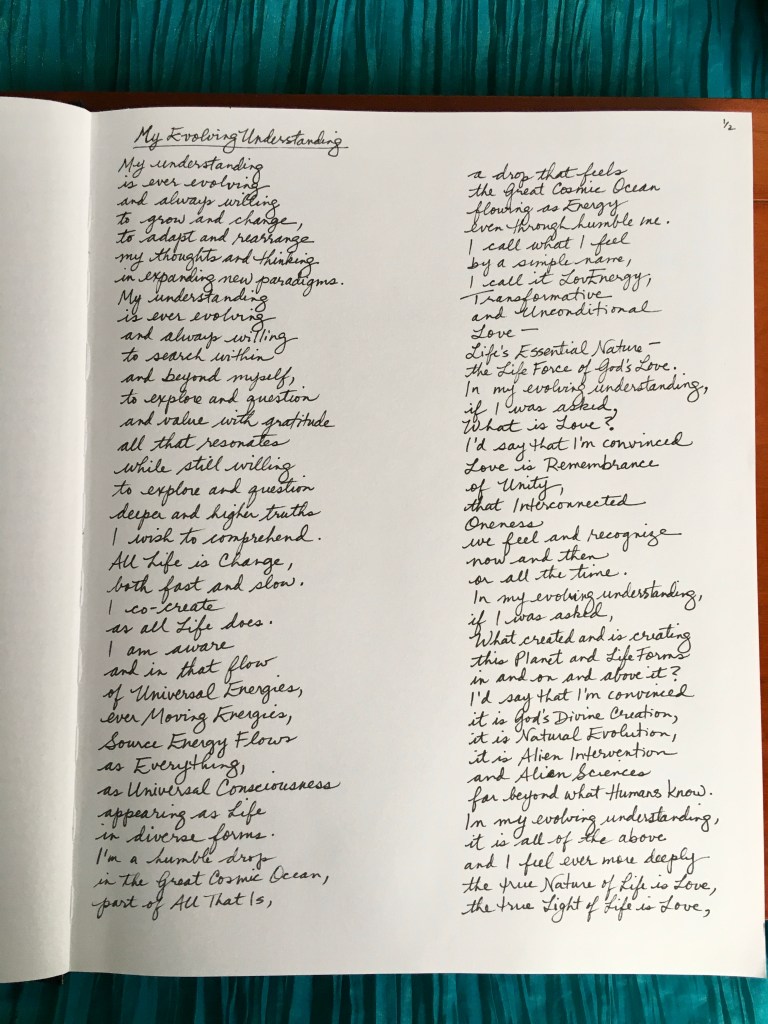 1/2
My Evolving Understanding
My understanding
is ever evolving
and always willing
to grow and change,
to adapt and rearrange
my thoughts and thinking
in expanding new paradigms.
My understanding
is ever evolving
and always willing
to search within
and beyond myself,
to explore and question
and value with gratitude
all that resonates
while still willing
to explore and question
deeper and higher truths
I wish to comprehend.
All Life is Change,
both fast and slow.
I co-create
as all Life does.
I am aware
and in that flow
of Universal Energies,
ever Moving Energies,
Source Energy Flows
as Everything,
as Universal Consciousness
appearing as Life
in diverse forms.
I'm a humble drop
in the Great Cosmic Ocean,
part of All That Is,
a drop that feels
the Great Cosmic Ocean
flowing as Energy
even through humble me.
I call what I feel
by a simple name,
I call it LovEnergy,
Transformative
and Unconditional
Love—
Life's Essential Nature—
the Life Force of God's Love.
In my evolving understanding,
if I was asked,
What is Love?
I'd say that I'm convinced
Love is Remembrance
of Unity,
that Interconnected
Oneness
we feel and recognize
now and then
or all the time.
In my evolving understanding,
if I was asked,
What created and is creating
this Planet and Life Forms
in and on and above it?
I'd say that I'm convinced
it is God's Divine Creation,
it is Natural Evolution,
it is Alien Intervention
and Alien Sciences
far beyond what Humans know.
In my evolving understanding,
it is all of the above
and I feel ever more deeply
the true Nature of Life is Love,
the true Light of Life is Love,